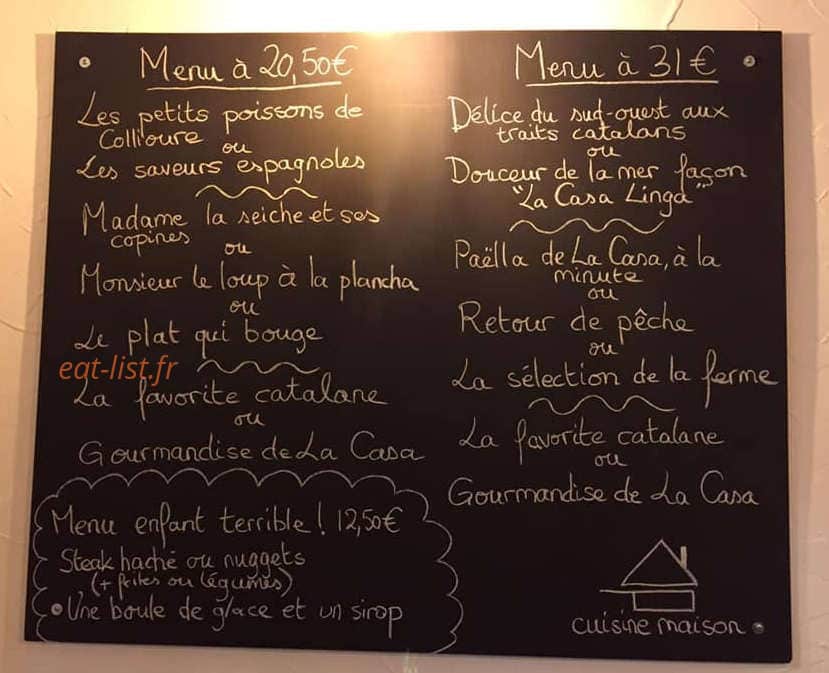 Menu à 20,50€
Les petits poissons de
Collioure
ou
Les saveurs espagnoles
Madame la seiche et ses
copines
ou
Monsieur le loup à la plancha
ou
Le plat qui bouge
eat-list.fr
La favorite catalane
ou
Gourmandise de La Casa
Menu enfant terrible! 12,50€
Steak haché ou nuggets
(+ frites ou légumes)
Une boule de glace et un sirop
Menu à 31€
Délice du sud-ouest aux
traits catalans
ou
Douceur de la mer façon
"La Casa Linga"
Paëlla de La Casa, à la
minute
ou
Retour de pêche
ou
La sélection de la ferme
La favorite catalane
ou
Gourmandise de La Casa
cuisine maison